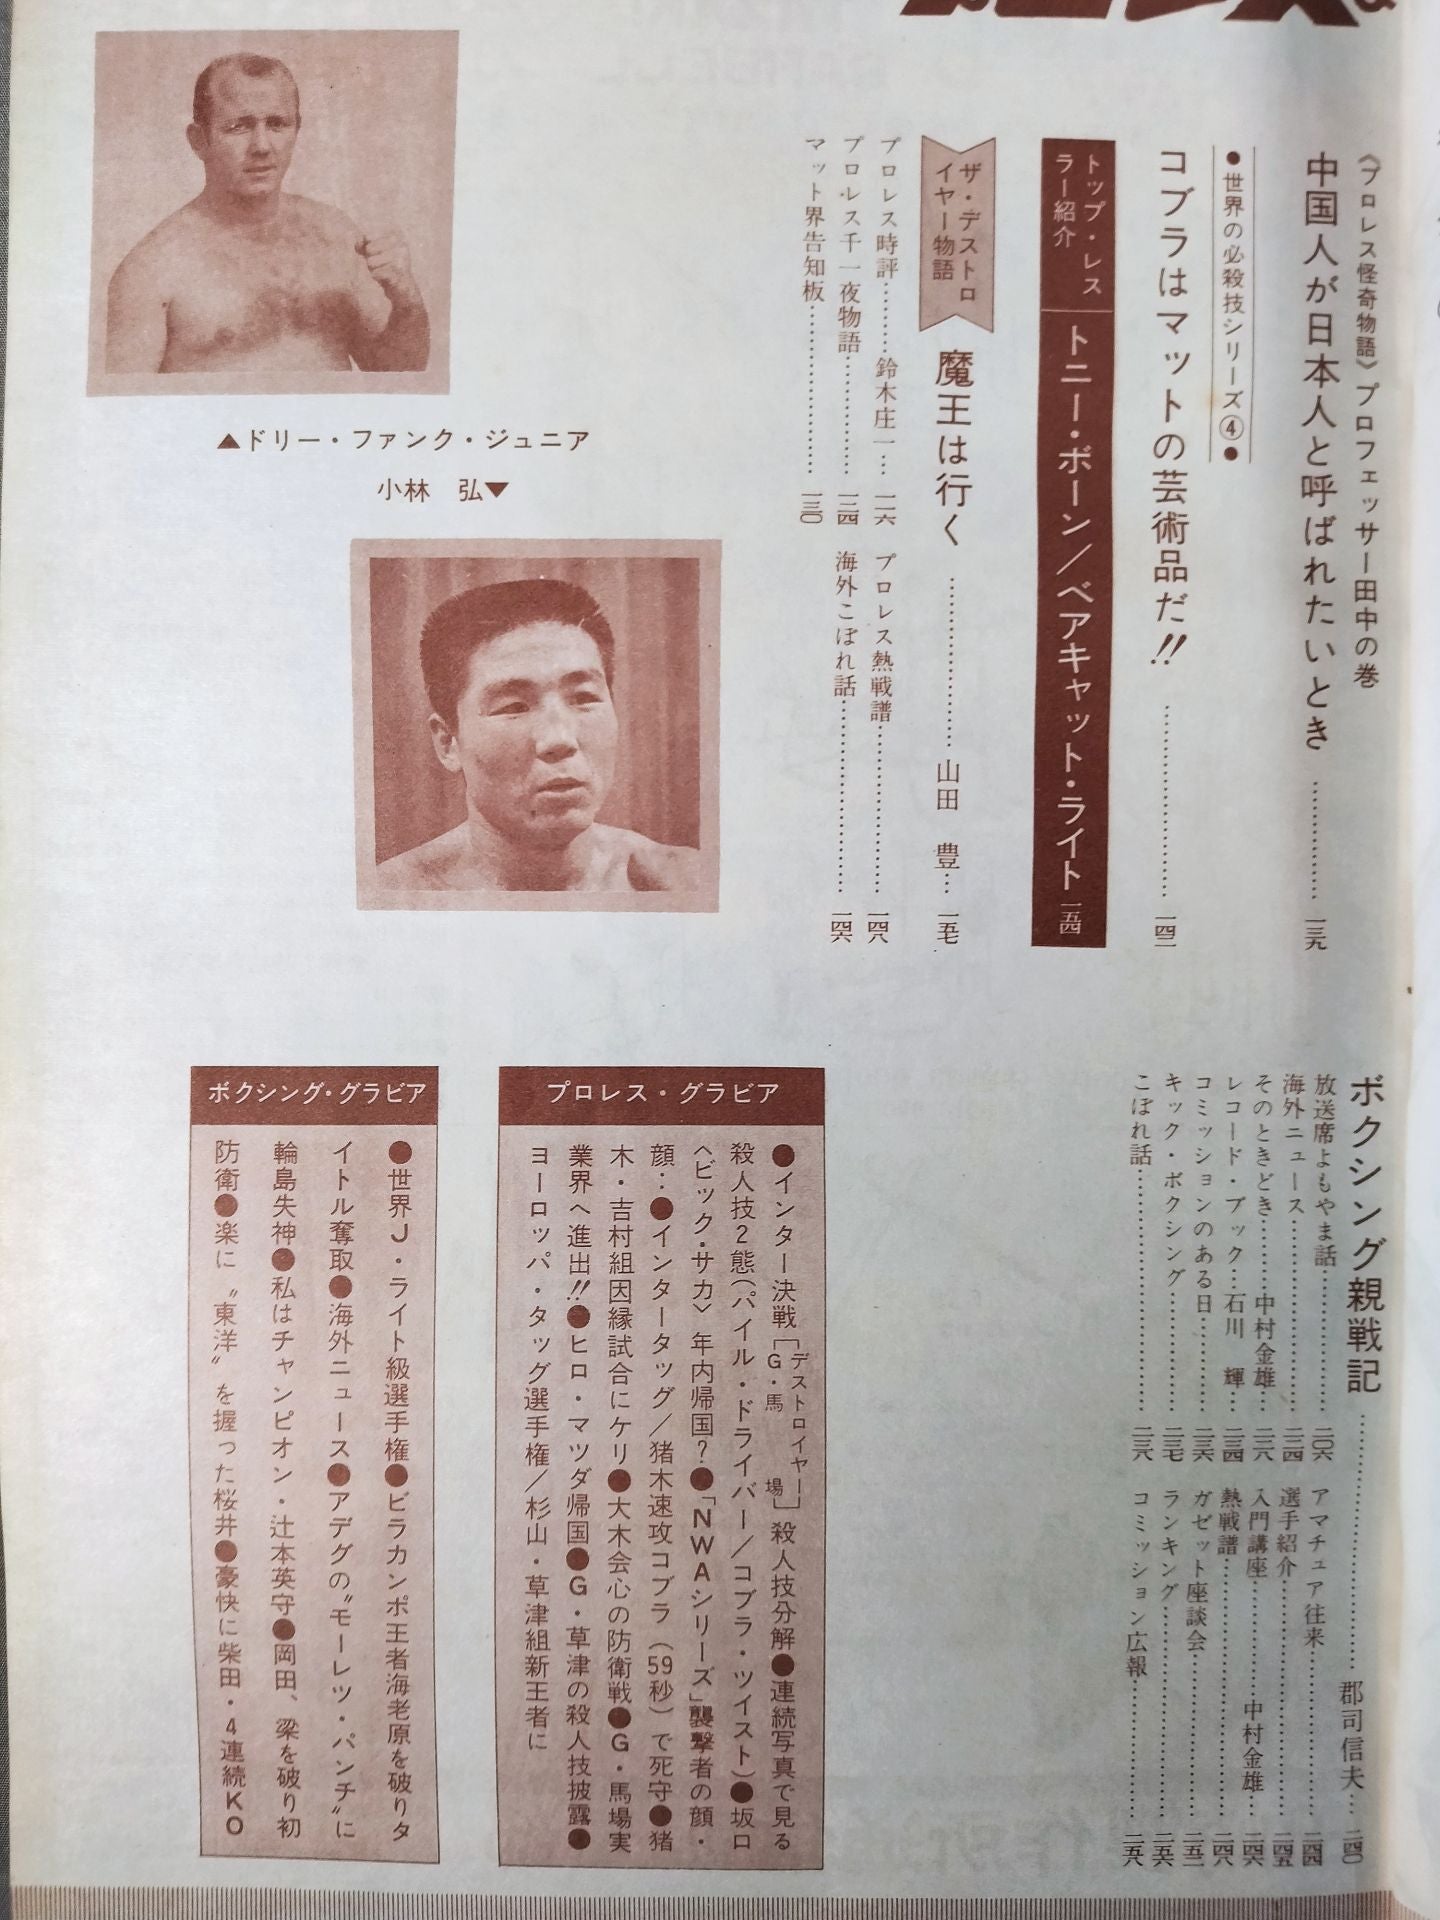 《プロレス怪奇物語》プロフェッサー田中の巻
中国人が日本人と呼ばれたいとき…………一三九
●世界の必殺技シリーズ④●
コブラはマットの芸術品だ!!…………一四二
トップ・レスラー紹介
トニー・ボーン/ベアキャット・ライト 一五四
ザ・デストロイヤー物語
魔王は行く…………山田 豊…一五七
プロレス時評………鈴木庄一…一二六
プロレス千一夜物語…………一三四
マット界告知板…………一三〇
プロレス熱戦譜…………一四八
海外こぼれ話…………一四六
▲ドリー・ファンク・ジュニア
小林 弘▼
ボクシング親戦記…………郡司信夫…二四〇
放送席よもやま話…………二〇六
海外ニュース…………二二四
そのときどき………中村金雄…二二八
レコード・ブック…石川 輝…二三四
コミッションのある日…………二三六
キック・ボクシング…………二三七
こぼれ話…………二三八
アマチュア往来…………二四四
選手紹介…………二四五
入門講座…………中村金雄…二四六
熱戦譜…………二四八
ガゼット座談会…………二五二
ランキング…………二五六
コミッション広報…………二五八
プロレス・グラビア
●インター決戦[デストロイヤー G・馬場]殺人技分解●連続写真で見る
殺人技2態(パイル・ドライバー/コブラ・ツイスト)●坂口
〈ビック・サカ〉年内帰国?●「NWAシリーズ」襲撃者の顔・
顔‥●インタータッグ/猪木速攻コブラ(59秒)で死守●猪
木・吉村組因縁試合にケリ●大木会心の防衛戦●G・馬場実
業界へ進出!!●ヒロ・マツダ帰国●G・草津の殺人技披露●
ヨーロッパ・タッグ選手権/杉山・草津組新王者に
ボクシング・グラビア
●世界J・ライト級選手権●ビラカンポ王者海老原を破りタ
イトル奪取●海外ニュース●アデグの〝モーレツ・パンチ〟に
輪島失神●私はチャンピオン・辻本英守●岡田、梁を破り初
防衛●楽に〝東洋〟を握った桜井●豪快に柴田・4連続KO